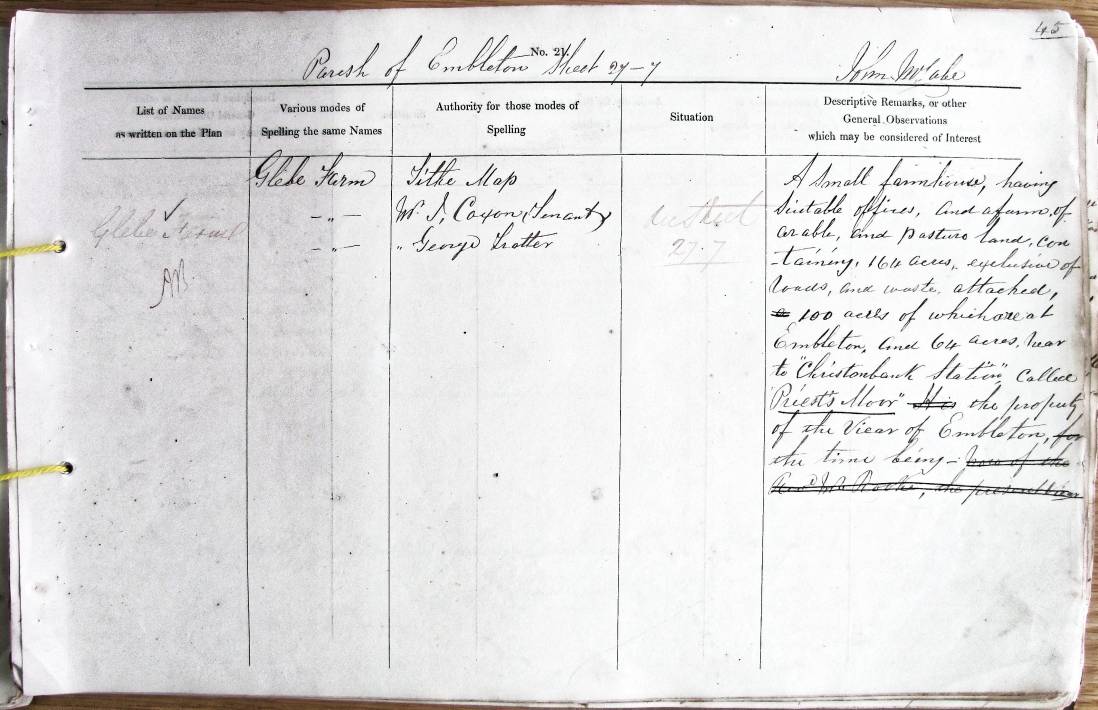 45
No. 21.
Parish of Embleton Sheet 27-7
John McCabe
List of Names
as written on the Plan
Various modes of
Spelling the same Names
Authority for those modes of
Spelling
Situation
Descriptive Remarks, or other
General Observations
which may be considered of Interest
Glebe Farm
Glebe Farm
- „ -
- „ -
AB
Tithe Map
W. J. Coxon, (Tenant)
„ George Trotter
27.7
A small farmhouse, having
suitable offices, and a farm of
arable, and pasture land, con
-taining, 164 acres, exclusive of
roads, and waste, attached,
100 acres of which are at
Embleton, and 64 acres, near
to "Christonbank Station", called
"Priest's Moor" It is the property
of the Vicar of Embleton, for
the time being - now of the
Revd Mr Rooke, the present Vicar